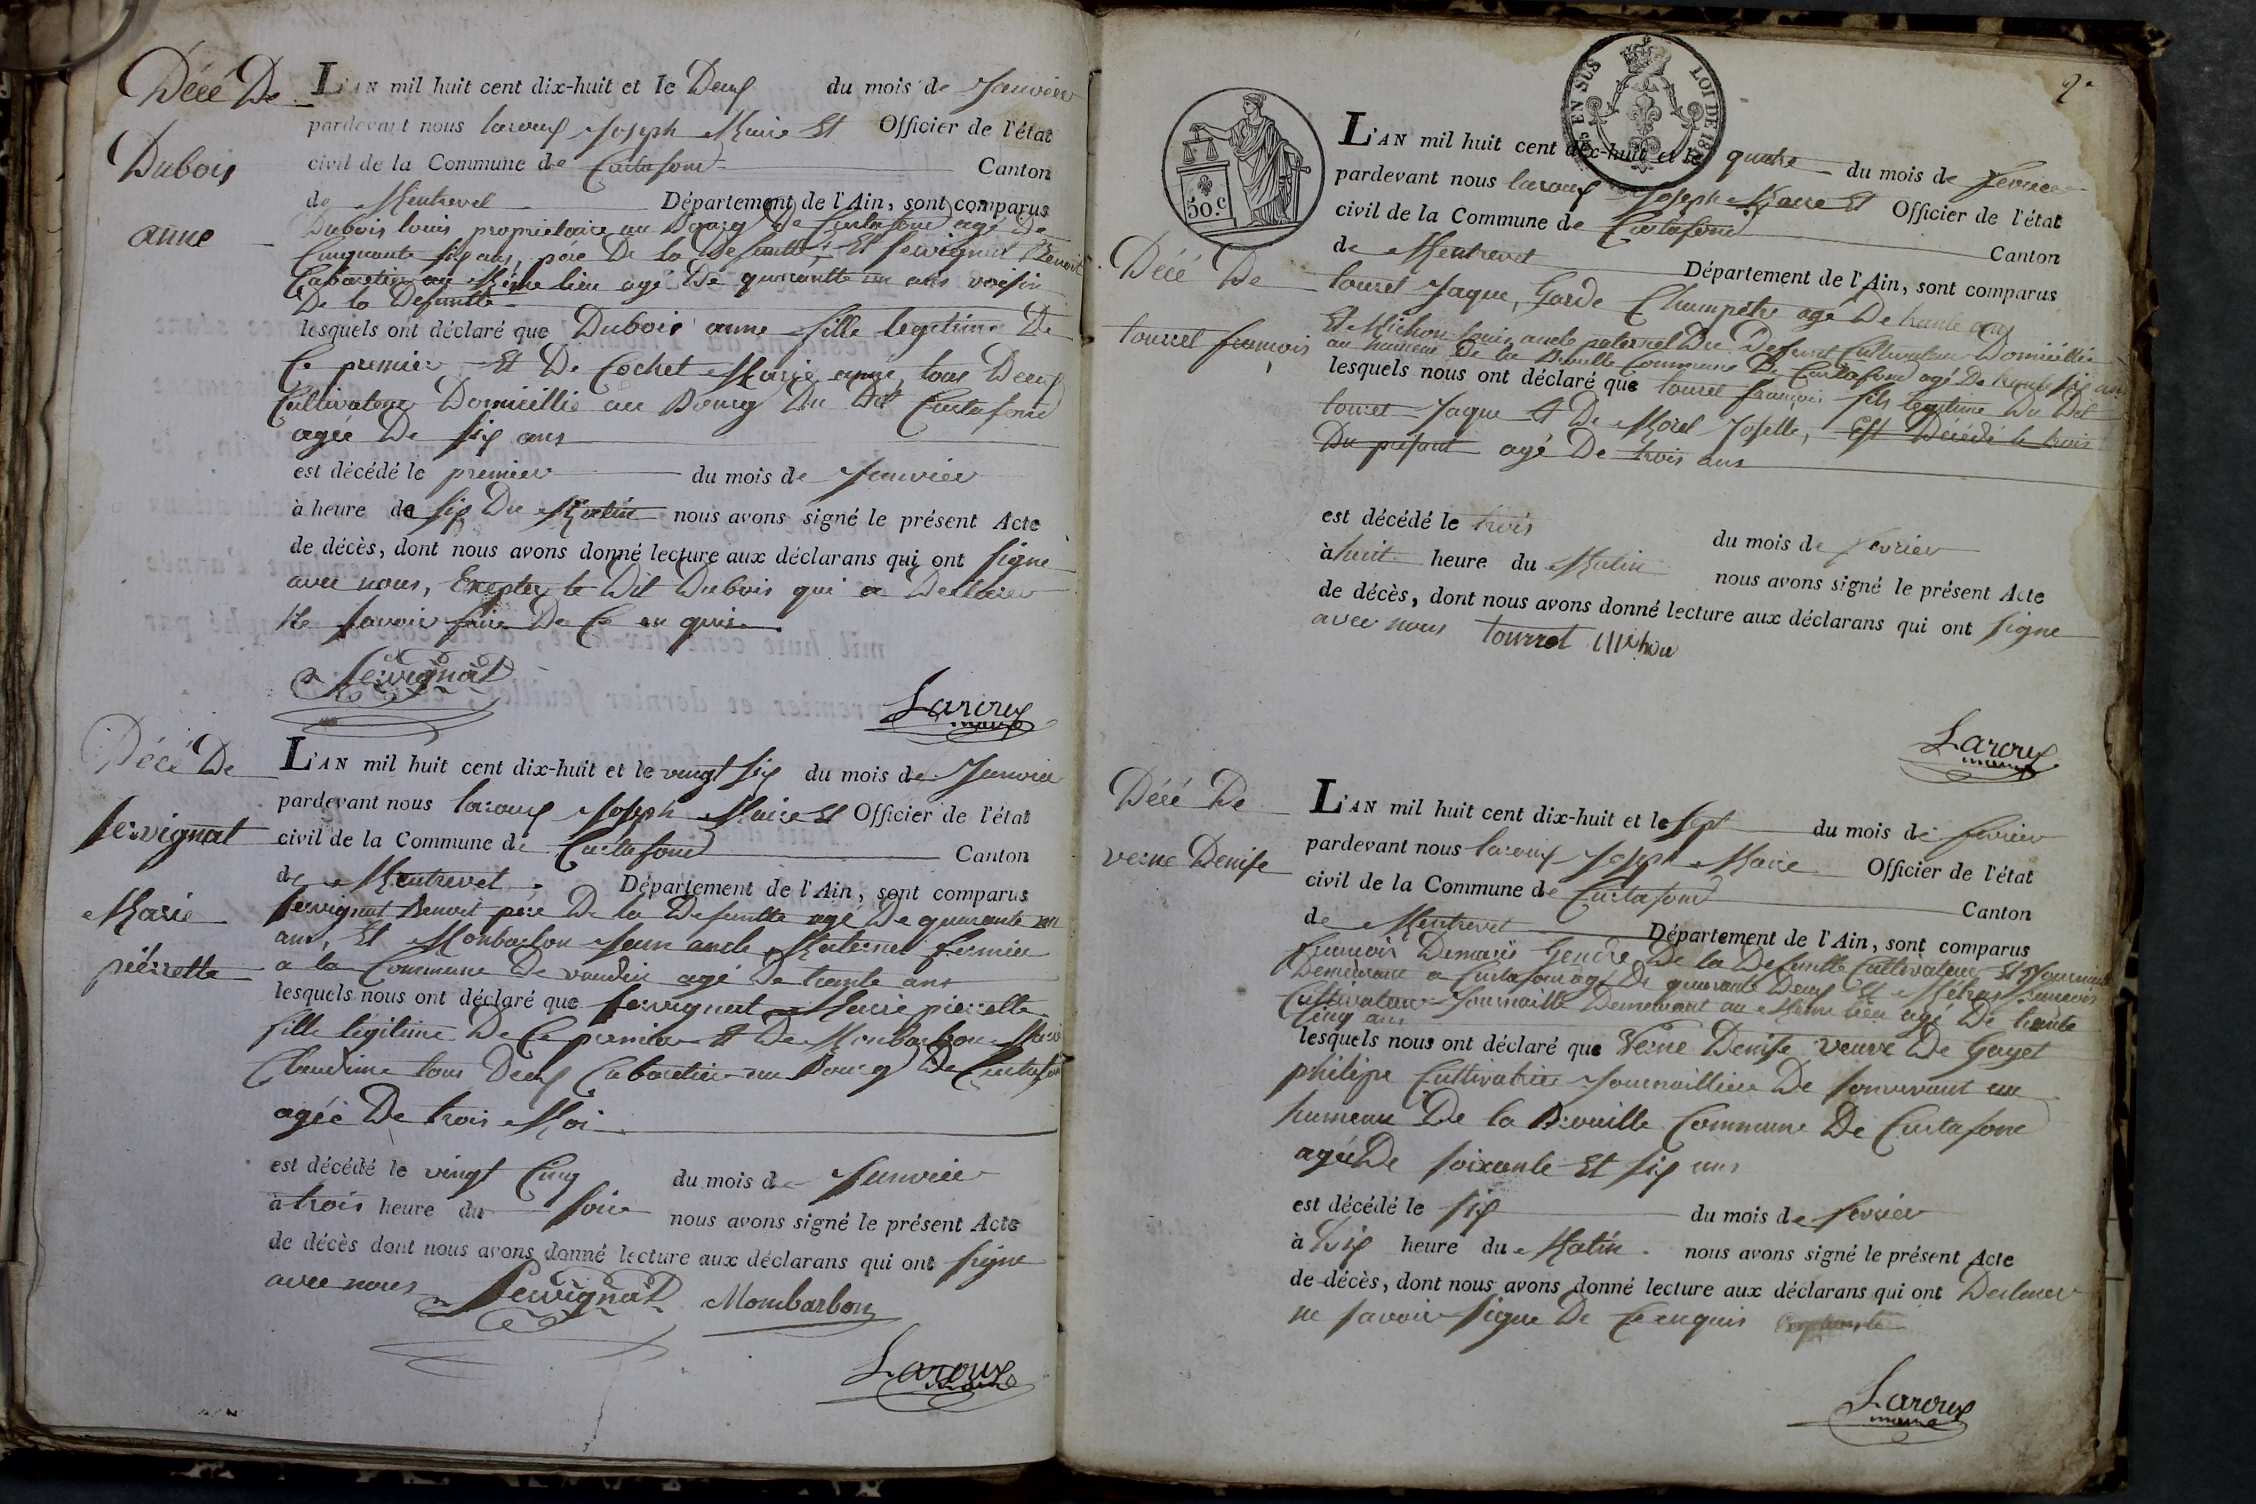 Décé De
Dubois
anne
L'AN mil huit cent dix-huit et le Deux du mois de Janvier
pardevant nous laroux Joseph Maire Et Officier de l'état
civil de la Commune de Curtafond Canton
de Montrevel Département de l'Ain, sont comparus
Dubois louis proprietaire au Bourg De Curtafond agé De
Cinquante six ans, pére De la Defuntte, Et servignat Benoit
Cabaretier au Même lieu agé De quarantte un ans voisin
De la Defuntte
lesquels ont déclaré que Dubois anne fille legitime De
Ce premier Et De Cochet Marie anne, tous Deux
Cultivateur Domicillié au Bourg Du Dit Curtafond
agée De six ans
est décédé le premier du mois de Janvier
à heure de six Du Matin nous avons signé le présent Acte
de décès, dont nous avons donné lecture aux déclarans qui ont signe
avec nous, Excepter le Dit Dubois qui a Declarer
Ne savoir faire De Ce en quis
Servignat
Laroux
maire
Décé De
servignat
Marie
piérrette
L'AN mil huit cent dix-huit et le vingt six du mois de Janvier
pardevant nous laroux Joseph Maire Et Officier de l'état
civil de la Commune de Curtafond Canton
de Montrevel Département de l'Ain, sont comparus
servignat Benoit pére De la Defuntte agé De quarante un
ans, Et Monbarbon Jean oncle Maternel fermier
a la Commune De vandein agé De trente ans
lesquels nous ont déclaré que servignat Marie pierrette
fille légitime De Ce premier Et De Monbarbon Marie
Claudine tous Deux Cabaretier au Bourg De Curtafond
agée De trois Moi
est décédé le vingt Cinq du mois de Janvier
à trois heure du soir nous avons signé le présent Acte
de décès dont nous avons donné lecture aux déclarans qui ont signe
avec nous Servignat Mombarbon
Laroux
maire
2e
EN SUS LOI DE 1816
50.c
Décé De
tourret françois
L'AN mil huit cent dix-huit et le quatre du mois de fevrier
pardevant nous laroux Joseph Maire Et Officier de l'état
civil de la Commune de Curtafond Canton
de Montrevel Département de l'Ain, sont comparus
touret Jaque, Garde Champétre agé De trente ans
Et Michon louis oncle paternel Du Defunt Cultivateur Domicillié
au hameau De la Breuille Commune De Curtafond agé De trente six ans
lesquels nous ont déclaré que touret françois fils legitime Du Dit
touret Jaque Et De Morel Josette, Est Décédé le trois
Du présant agé De trois ans
est décédé le trois du mois de fevrier
à huit heure du Matin nous avons signé le présent Acte
de décès, dont nous avons donné lecture aux déclarans qui ont signe
avec nous tourret Michon
Laroux
maire
Décé De
verne Denise
L'AN mil huit cent dix-huit et le sept du mois de fevrier
pardevant nous laroux Joseph Maire Officier de l'état
civil de la Commune de Curtafond Canton
de Montrevel Département de l'Ain, sont comparus
françois Demaris Gendre De la Defuntte Cultivateur Et Journaillé
Demeurant a Curtafond agé De quarante Deux Et Métras francois
Cultivateur Journaillé Demeurant au Même lieu agé De trente
Cinq ans
lesquels nous ont déclaré que Verne Denise veuve De Gayet
philipe Cultivatrice Journaillière De sonvivant au
hameau De la Breuille Commune De Curtafond
agée De soixante Et six ans
est décédé le six du mois de fevrier
à six heure du Matin nous avons signé le présent Acte
de décès, dont nous avons donné lecture aux déclarans qui ont Declarer
ne savoir signe De Ce enquis
Laroux
maire